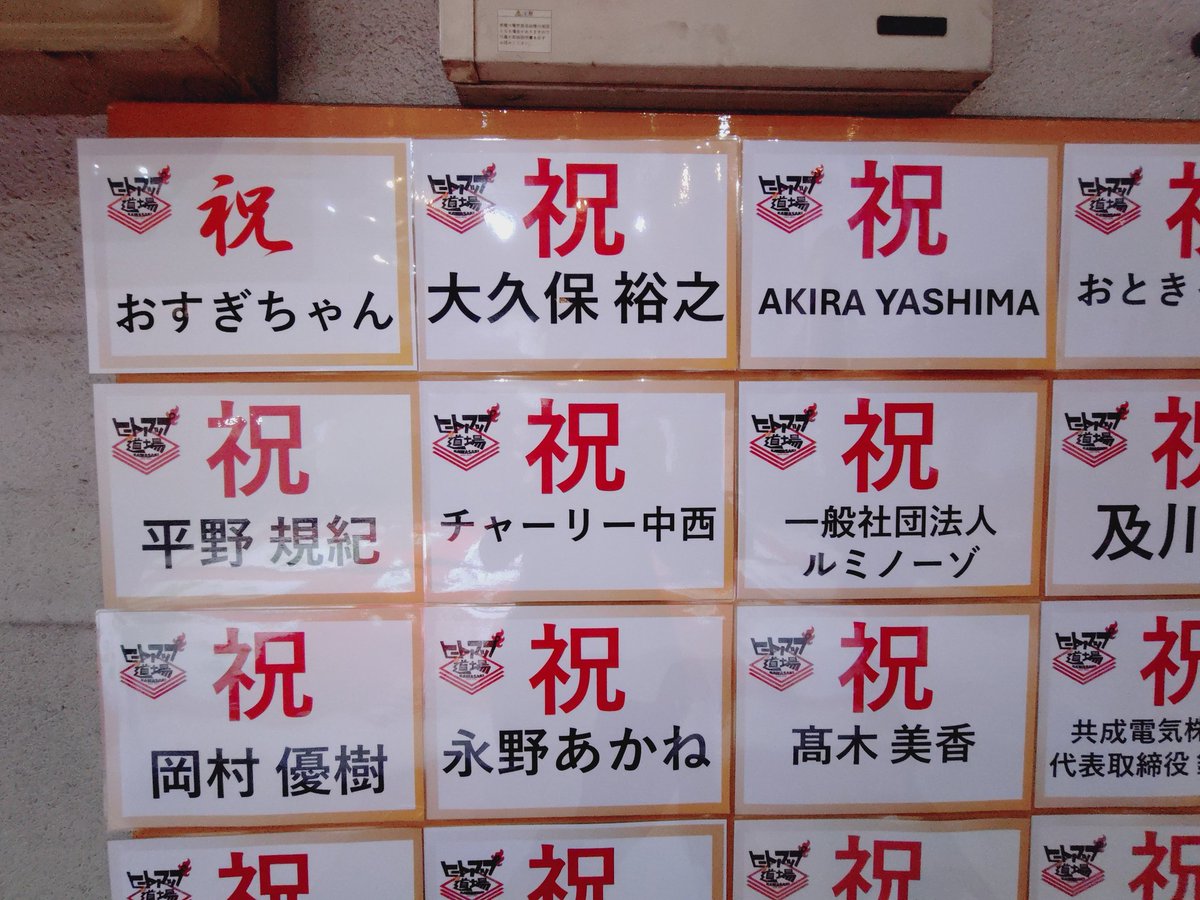 ヒートアップ
道場
KAWASAKI
祝
おすぎちゃん
ヒートアップ
道場
KAWASAKI
祝
大久保 裕之
ヒートアップ
道場
KAWASAKI
祝
AKIRA YASHIMA
ヒートアップ
道場
KAWASAKI
おとき
ヒートアップ
道場
KAWASAKI
祝
平野 規紀
ヒートアップ
道場
KAWASAKI
祝
チャーリー中西
ヒートアップ
道場
KAWASAKI
祝
一般社団法人
ルミノーゾ
ヒートアップ
道場
KAWASAKI
祝
及川
ヒートアップ
道場
KAWASAKI
祝
岡村 優樹
ヒートアップ
道場
KAWASAKI
祝
永野あかね
ヒートアップ
道場
KAWASAKI
祝
髙木 美香
ヒートアップ
道場
KAWASAKI
祝
共成電気株
代表取締役
ヒートアップ
道場
祝
ヒートアップ
道場
祝
ヒートアップ
道場
KAWASAKI
祝
ヒートアップ
道場
KAWASAKI
祝